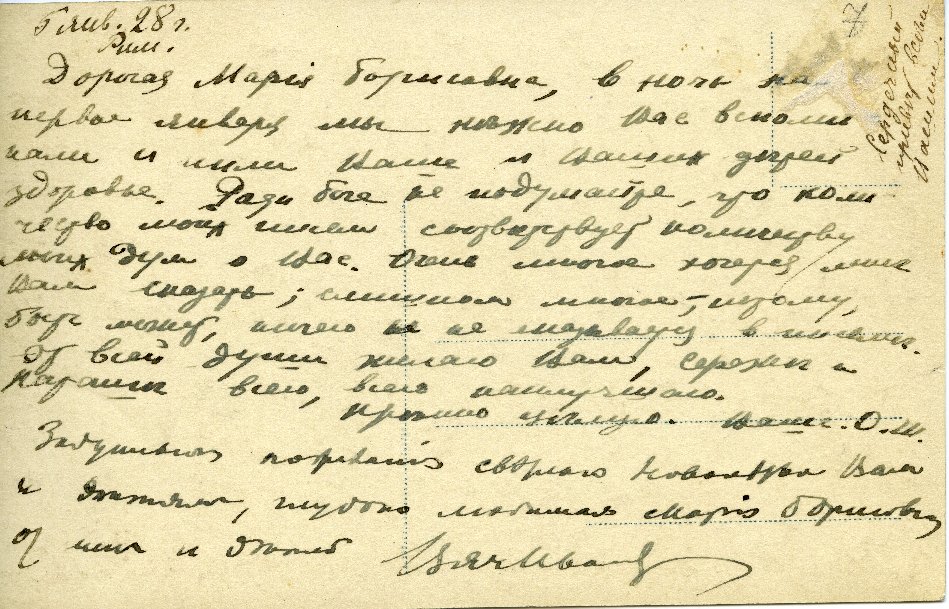 6 янв. 28 г.
Рим.
Дорогая Марія Борисовна, в ночь на
первое января мы нѣжно Вас вспоми
нали и пили Ваше и Ваших дѣтей
здоровье. Ради бога не подумайте, что коли
чество моих писем соответствует количеству
моих дум о Вас. Очень многое хочется мнѣ
Вам сказать; слишком многое, – потому,
быть может, ничего не сказывается в письмѣ.
От всей души желаю Вам, Сережѣ и
Наташѣ всего, всего наилучшего.
Крѣпко цѣлую. Ваша О. Ш.
Задушевныя пожеланія Новолѣтья Вам
и дѣтям, глубоко любимая Марія Борисовна
от них и
Вяч Иванов
Сердечный
привет всем
Вашим.